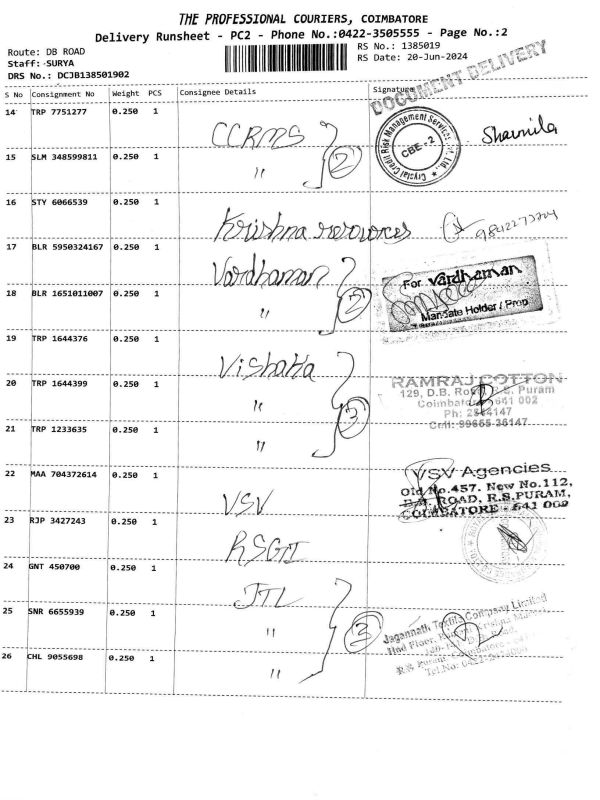 THE PROFESSIONAL COURIERS, COIMBATORE
Delivery Runsheet - PC2 - Phone No.:0422-3505555 - Page No.:2
Route: DB ROAD
Staff: SURYA
DRS No.: DCJB138501902
RS No.: 1385019
RS Date: 20-Jun-2024
DOCUMENT DELIVERY
S No Consignment No Weight PCS Consignee Details Signature
14 TRP 7751277 0.250 1 CCRMS
Crystal Credit Risk Management Services Pvt. Ltd.,
CBE - 2
Sharmila
15 SLM 348599811 0.250 1 " 2
16 STY 6066539 0.250 1 Krishna resources
17 BLR 5950324167 0.250 1 Vardhaman
For vardhaman
Mandate Holder / Prop
18 BLR 1651011007 0.250 1 " 2
19 TRP 1644376 0.250 1 Vishaka
20 TRP 1644399 0.250 1 " 3
RAMRAJ COTTON
129, D.B. Road, R.S. Puram
Coimbatore 641 002
Ph: 2544147
Cell: 99655-36147
21 TRP 1233635 0.250 1 "
22 MAA 704372614 0.250 1 VSV
VSV Agencies
Old No.457. New No.112,
ROAD, R.S.PURAM,
COIMBATORE - 641 002
23 RJP 3427243 0.250 1 RSGI
24 GNT 450700 0.250 1 JTL
25 SNR 6655939 0.250 1 " 3
Jagannath Textile Company Limited
26 CHL 9055698 0.250 1 "